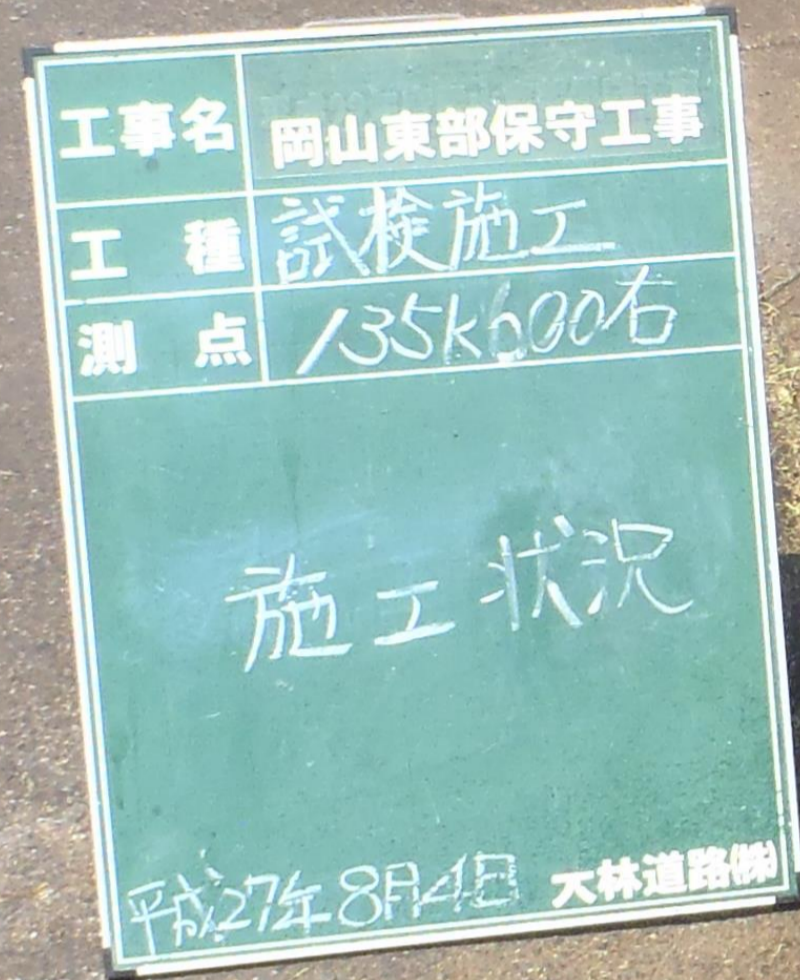 工事名 岡山東部保守工事
工種 試検施工
測点 135k600右
施工状況
平成27年8月4日 大林道路(株)